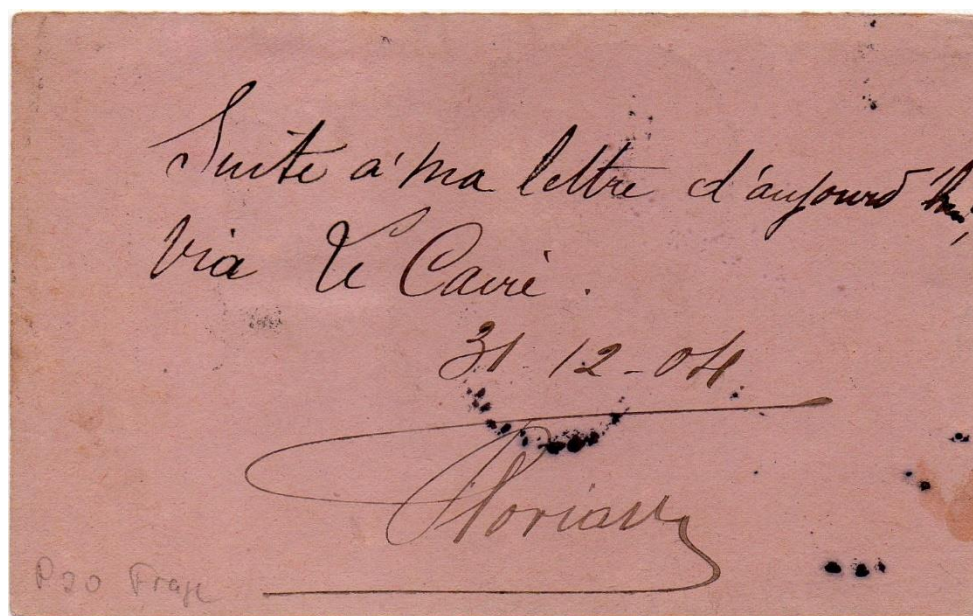 Suite a' ma lettre d'aujourd'hui,
via Le Caire.
31-12-04.
Florian
P20